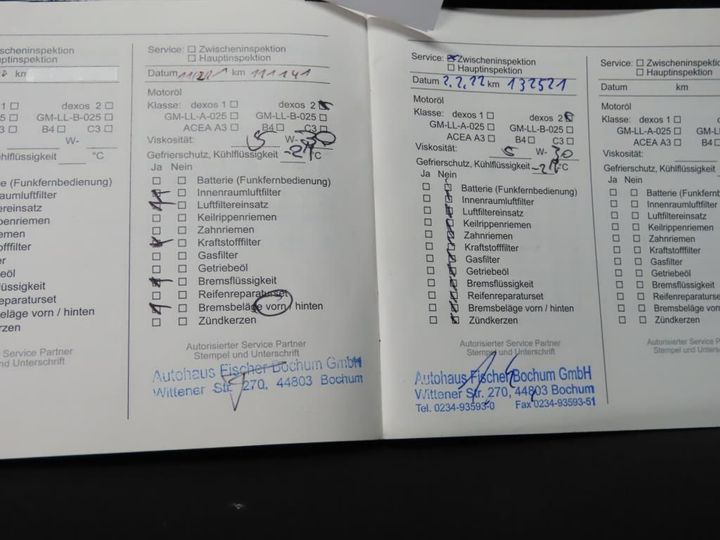 schen­inspektion
ptinspektion
km
dexos 2 ☐
GM-LL-B-025 ☐
B4 ☐ C3 ☐
W-
ühlflüssigkeit °C
ie (Funkfernbedienung)
aumluftfilter
tereinsatz
ppenriemen
emen
offfilter
er
eöl
üssigkeit
eparaturset
beläge vorn / hinten
erzen
Service Partner
d Unterschrift
Service: ☐ Zwischeninspektion
☐ Hauptinspektion
Datum km 111141
Motoröl
Klasse: dexos 1 ☐ dexos 2 ☒
GM-LL-A-025 ☐ GM-LL-B-025 ☐
ACEA A3 ☐ B4 ☐ C3 ☐
Viskosität: 5 W- 30
Gefrierschutz, Kühlflüssigkeit °C
Ja Nein
Batterie (Funkfernbedienung)
Innenraumluftfilter
Luftfiltereinsatz
Keilrippenriemen
Zahnriemen
Kraftstofffilter
Gasfilter
Getriebeöl
Bremsflüssigkeit
Reifenreparaturset
Bremsbeläge vorn / hinten
Zündkerzen
Autorisierter Service Partner
Stempel und Unterschrift
Autohaus Fischer Bochum GmbH
Wittener Str. 270, 44803 Bochum
Service: ☒ Zwischeninspektion
☐ Hauptinspektion
Datum 2.2.22 km 132521
Motoröl
Klasse: dexos 1 ☐ dexos 2 ☒
GM-LL-A-025 ☐ GM-LL-B-025 ☐
ACEA A3 ☐ B4 ☐ C3 ☐
Viskosität: 5 W- 30
Gefrierschutz, Kühlflüssigkeit °C
Ja Nein
Batterie (Funkfernbedienung)
Innenraumluftfilter
Luftfiltereinsatz
Keilrippenriemen
Zahnriemen
Kraftstofffilter
Gasfilter
Getriebeöl
Bremsflüssigkeit
Reifenreparaturset
Bremsbeläge vorn / hinten
Zündkerzen
Autorisierter Service Partner
Stempel und Unterschrift
Autohaus Fischer Bochum GmbH
Wittener Str. 270, 44803 Bochum
Tel. 0234-93593-0 Fax 0234-93593-51
Service: ☐ Zwischenins
☐ Hauptinspek
Datum km
Motoröl
Klasse: dexos 1 ☐
GM-LL-A-025 ☐ GM-LL
ACEA A3 ☐ B4
Viskosität:
Gefrierschutz, Kühlflüssigkeit
Ja Nein
Batterie (Funkfernbe
Innenraumluftfilter
Luftfiltereinsatz
Keilrippenriemen
Zahnriemen
Kraftstofffilter
Gasfilter
Getriebeöl
Bremsflüssigkeit
Reifenreparaturset
Bremsbeläge vorn /
Zündkerzen
Autorisierter Service Pa
Stempel und Untersch